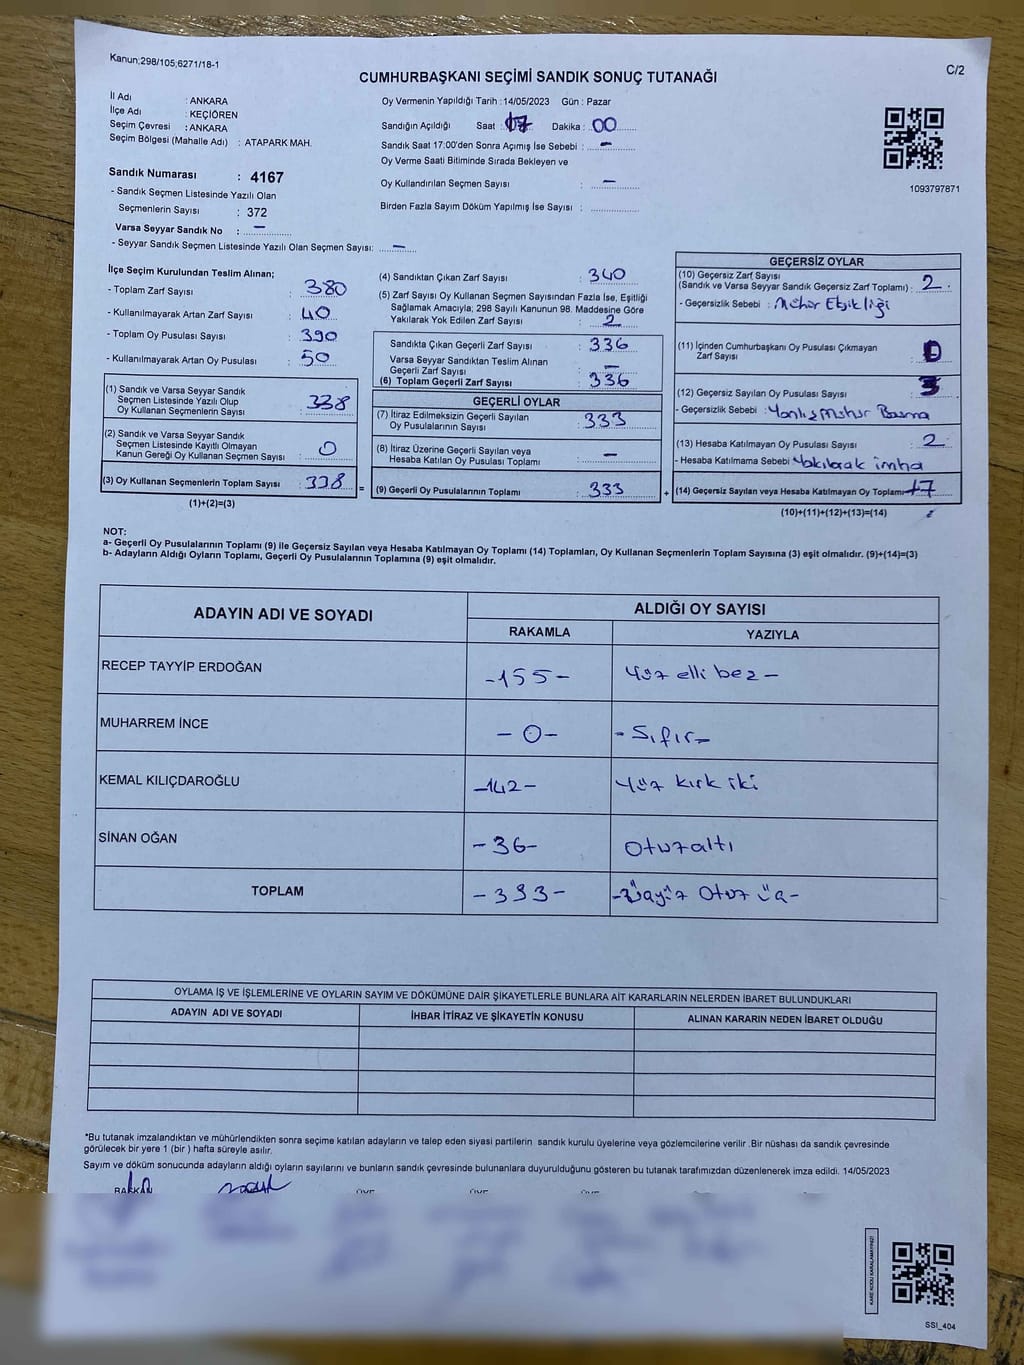 Kanun;298/105;6271/18-1
C/2
CUMHURBAŞKANI SEÇİMİ SANDIK SONUÇ TUTANAĞI
İl Adı : ANKARA
İlçe Adı : KEÇİÖREN
Seçim Çevresi : ANKARA
Seçim Bölgesi (Mahalle Adı) : ATAPARK MAH.
Oy Vermenin Yapıldığı Tarih : 14/05/2023 Gün : Pazar
Sandığın Açıldığı Saat : 17 Dakika : 00
Sandık Saat 17:00'den Sonra Açımış İse Sebebi : -
Oy Verme Saati Bitiminde Sırada Bekleyen ve
Oy Kullandırılan Seçmen Sayısı : -
Birden Fazla Sayım Döküm Yapılmış İse Sayısı :
1093797871
Sandık Numarası : 4167
- Sandık Seçmen Listesinde Yazılı Olan
Seçmenlerin Sayısı : 372
Varsa Seyyar Sandık No : -
- Seyyar Sandık Seçmen Listesinde Yazılı Olan Seçmen Sayısı: -
İlçe Seçim Kurulundan Teslim Alınan;
- Toplam Zarf Sayısı : 380
- Kullanılmayarak Artan Zarf Sayısı : 40
- Toplam Oy Pusulası Sayısı : 390
- Kullanılmayarak Artan Oy Pusulası : 50
(1) Sandık ve Varsa Seyyar Sandık
Seçmen Listesinde Yazılı Olup
Oy Kullanan Seçmenlerin Sayısı : 338
(2) Sandık ve Varsa Seyyar Sandık
Seçmen Listesinde Kayıtlı Olmayan
Kanun Gereği Oy Kullanan Seçmen Sayısı : 0
(3) Oy Kullanan Seçmenlerin Toplam Sayısı : 338
(1)+(2)=(3)
(4) Sandıktan Çıkan Zarf Sayısı : 340
(5) Zarf Sayısı Oy Kullanan Seçmen Sayısından Fazla İse, Eşitliği
Sağlamak Amacıyla; 298 Sayılı Kanunun 98. Maddesine Göre
Yakılarak Yok Edilen Zarf Sayısı : 2
Sandıkta Çıkan Geçerli Zarf Sayısı : 336
Varsa Seyyar Sandıktan Teslim Alınan
Geçerli Zarf Sayısı : -
(6) Toplam Geçerli Zarf Sayısı : 336
GEÇERLİ OYLAR
(7) İtiraz Edilmeksizin Geçerli Sayılan
Oy Pusulalarının Sayısı : 333
(8) İtiraz Üzerine Geçerli Sayılan veya
Hesaba Katılan Oy Pusulası Toplamı : -
= (9) Geçerli Oy Pusulalarının Toplamı : 333
GEÇERSİZ OYLAR
(10) Geçersiz Zarf Sayısı
(Sandık ve Varsa Seyyar Sandık Geçersiz Zarf Toplamı) : 2
- Geçersizlik Sebebi : Mühür Eksikliği
(11) İçinden Cumhurbaşkanı Oy Pusulası Çıkmayan
Zarf Sayısı : 0
(12) Geçersiz Sayılan Oy Pusulası Sayısı : 3
- Geçersizlik Sebebi : Yanlız Mühür Basma
(13) Hesaba Katılmayan Oy Pusulası Sayısı : 2
- Hesaba Katılmama Sebebi : Yakılarak imha
+ (14) Geçersiz Sayılan veya Hesaba Katılmayan Oy Toplamı : 7
(10)+(11)+(12)+(13)=(14)
NOT:
a- Geçerli Oy Pusulalarının Toplamı (9) ile Geçersiz Sayılan veya Hesaba Katılmayan Oy Toplamı (14) Toplamları, Oy Kullanan Seçmenlerin Toplam Sayısına (3) eşit olmalıdır. (9)+(14)=(3)
b- Adayların Aldığı Oyların Toplamı, Geçerli Oy Pusulalarının Toplamına (9) eşit olmalıdır.
ADAYIN ADI VE SOYADI
ALDIĞI OY SAYISI
RAKAMLA YAZIYLA
RECEP TAYYİP ERDOĞAN -155- Yüz elli beş -
MUHARREM İNCE -0- - Sıfır -
KEMAL KILIÇDAROĞLU -142- Yüz kırk iki
SİNAN OĞAN -36- Otuz altı
TOPLAM -333- -Üçyüz Otuz üç-
OYLAMA İŞ VE İŞLEMLERİNE VE OYLARIN SAYIM VE DÖKÜMÜNE DAİR ŞİKAYETLERLE BUNLARA AİT KARARLARIN NELERDEN İBARET BULUNDUKLARI
ADAYIN ADI VE SOYADI İHBAR İTİRAZ VE ŞİKAYETİN KONUSU ALINAN KARARIN NEDEN İBARET OLDUĞU
*Bu tutanak imzalandıktan ve mühürlendikten sonra seçime katılan adayların ve talep eden siyasi partilerin sandık kurulu üyelerine veya gözlemcilerine verilir .Bir nüshası da sandık çevresinde
görülecek bir yere 1 (bir ) hafta süreyle asılır.
Sayım ve döküm sonucunda adayların aldığı oyların sayılarını ve bunların sandık çevresinde bulunanlara duyurulduğunu gösteren bu tutanak tarafımızdan düzenlenerek imza edildi. 14/05/2023
BAŞKAN ÜYE ÜYE ÜYE
KARE KODU KARALAMAYINIZ!
SSI_404